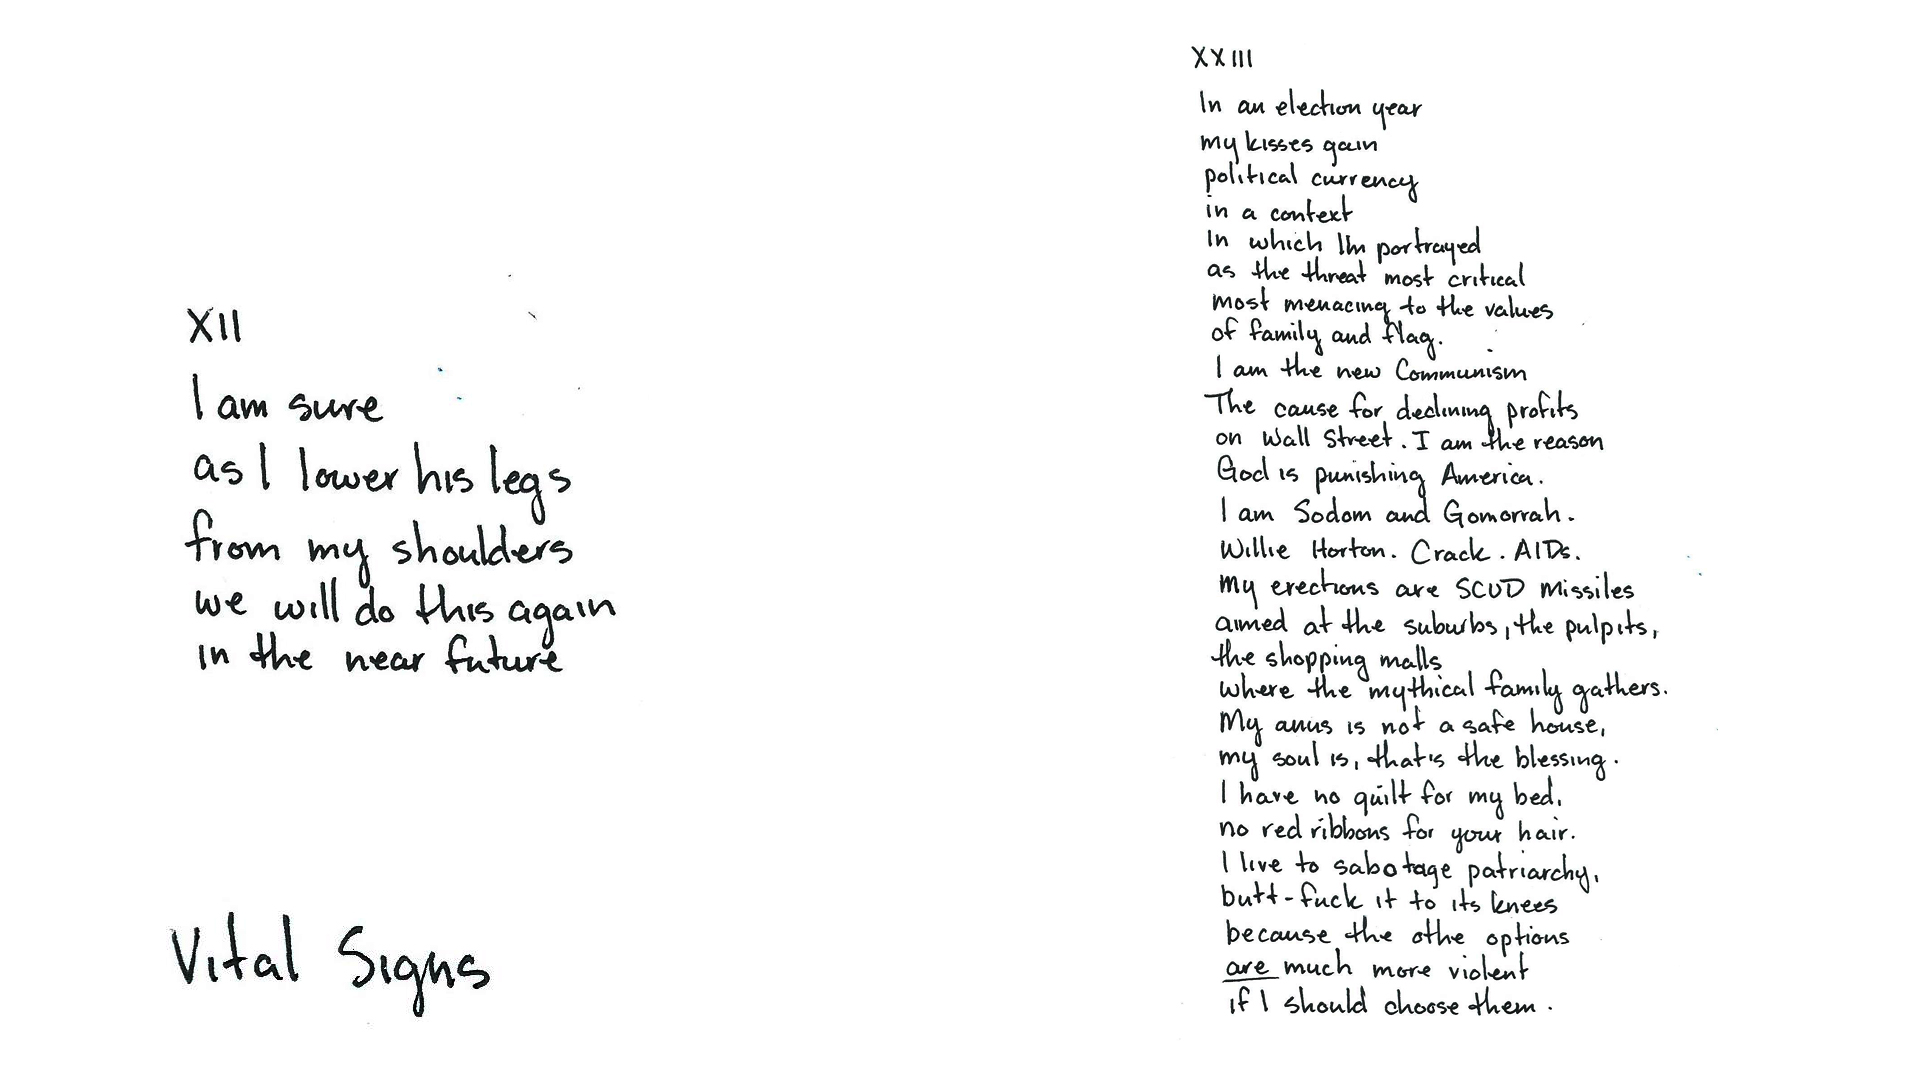 XII
I am sure
as I lower his legs
from my shoulders
we will do this again
in the near future
Vital Signs
XXIII
In an election year
my kisses gain
political currency
in a context
In which I'm portrayed
as the threat most critical
most menacing to the values
of family and flag.
I am the new Communism
The cause for declining profits
on Wall Street. I am the reason
God is punishing America.
I am Sodom and Gomorrah.
Willie Horton. Crack. AIDs.
My erections are SCUD missiles
aimed at the suburbs, the pulpits,
the shopping malls
where the mythical family gathers.
My anus is not a safe house,
my soul is, that's the blessing.
I have no quilt for my bed,
no red ribbons for your hair.
I live to sabotage patriarchy,
butt-fuck it to its knees
because the othe options
are much more violent
if I should choose them.